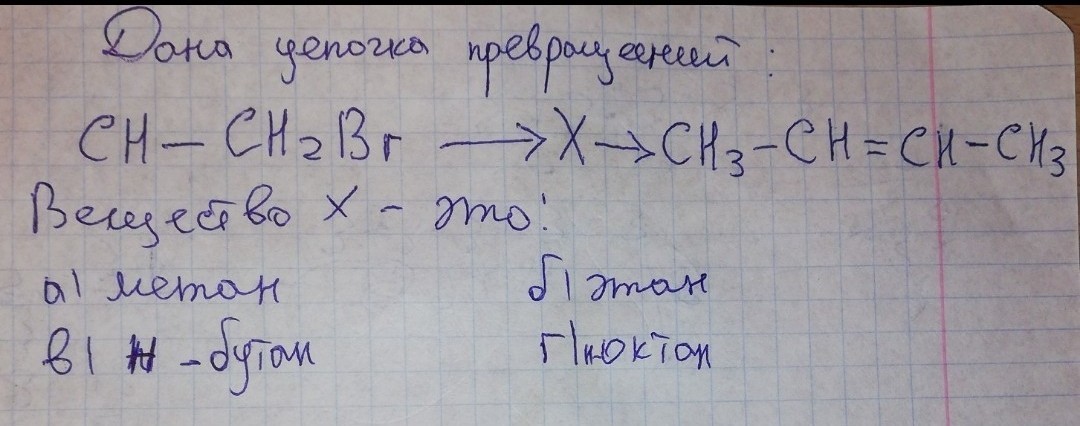 Дана цепочка превращений:
CH — CH₂Br ⟶ X → CH₃ – CH = CH – CH₃
Вещество X – это:
а) метан б) этан
в) н – бутан г) н октан